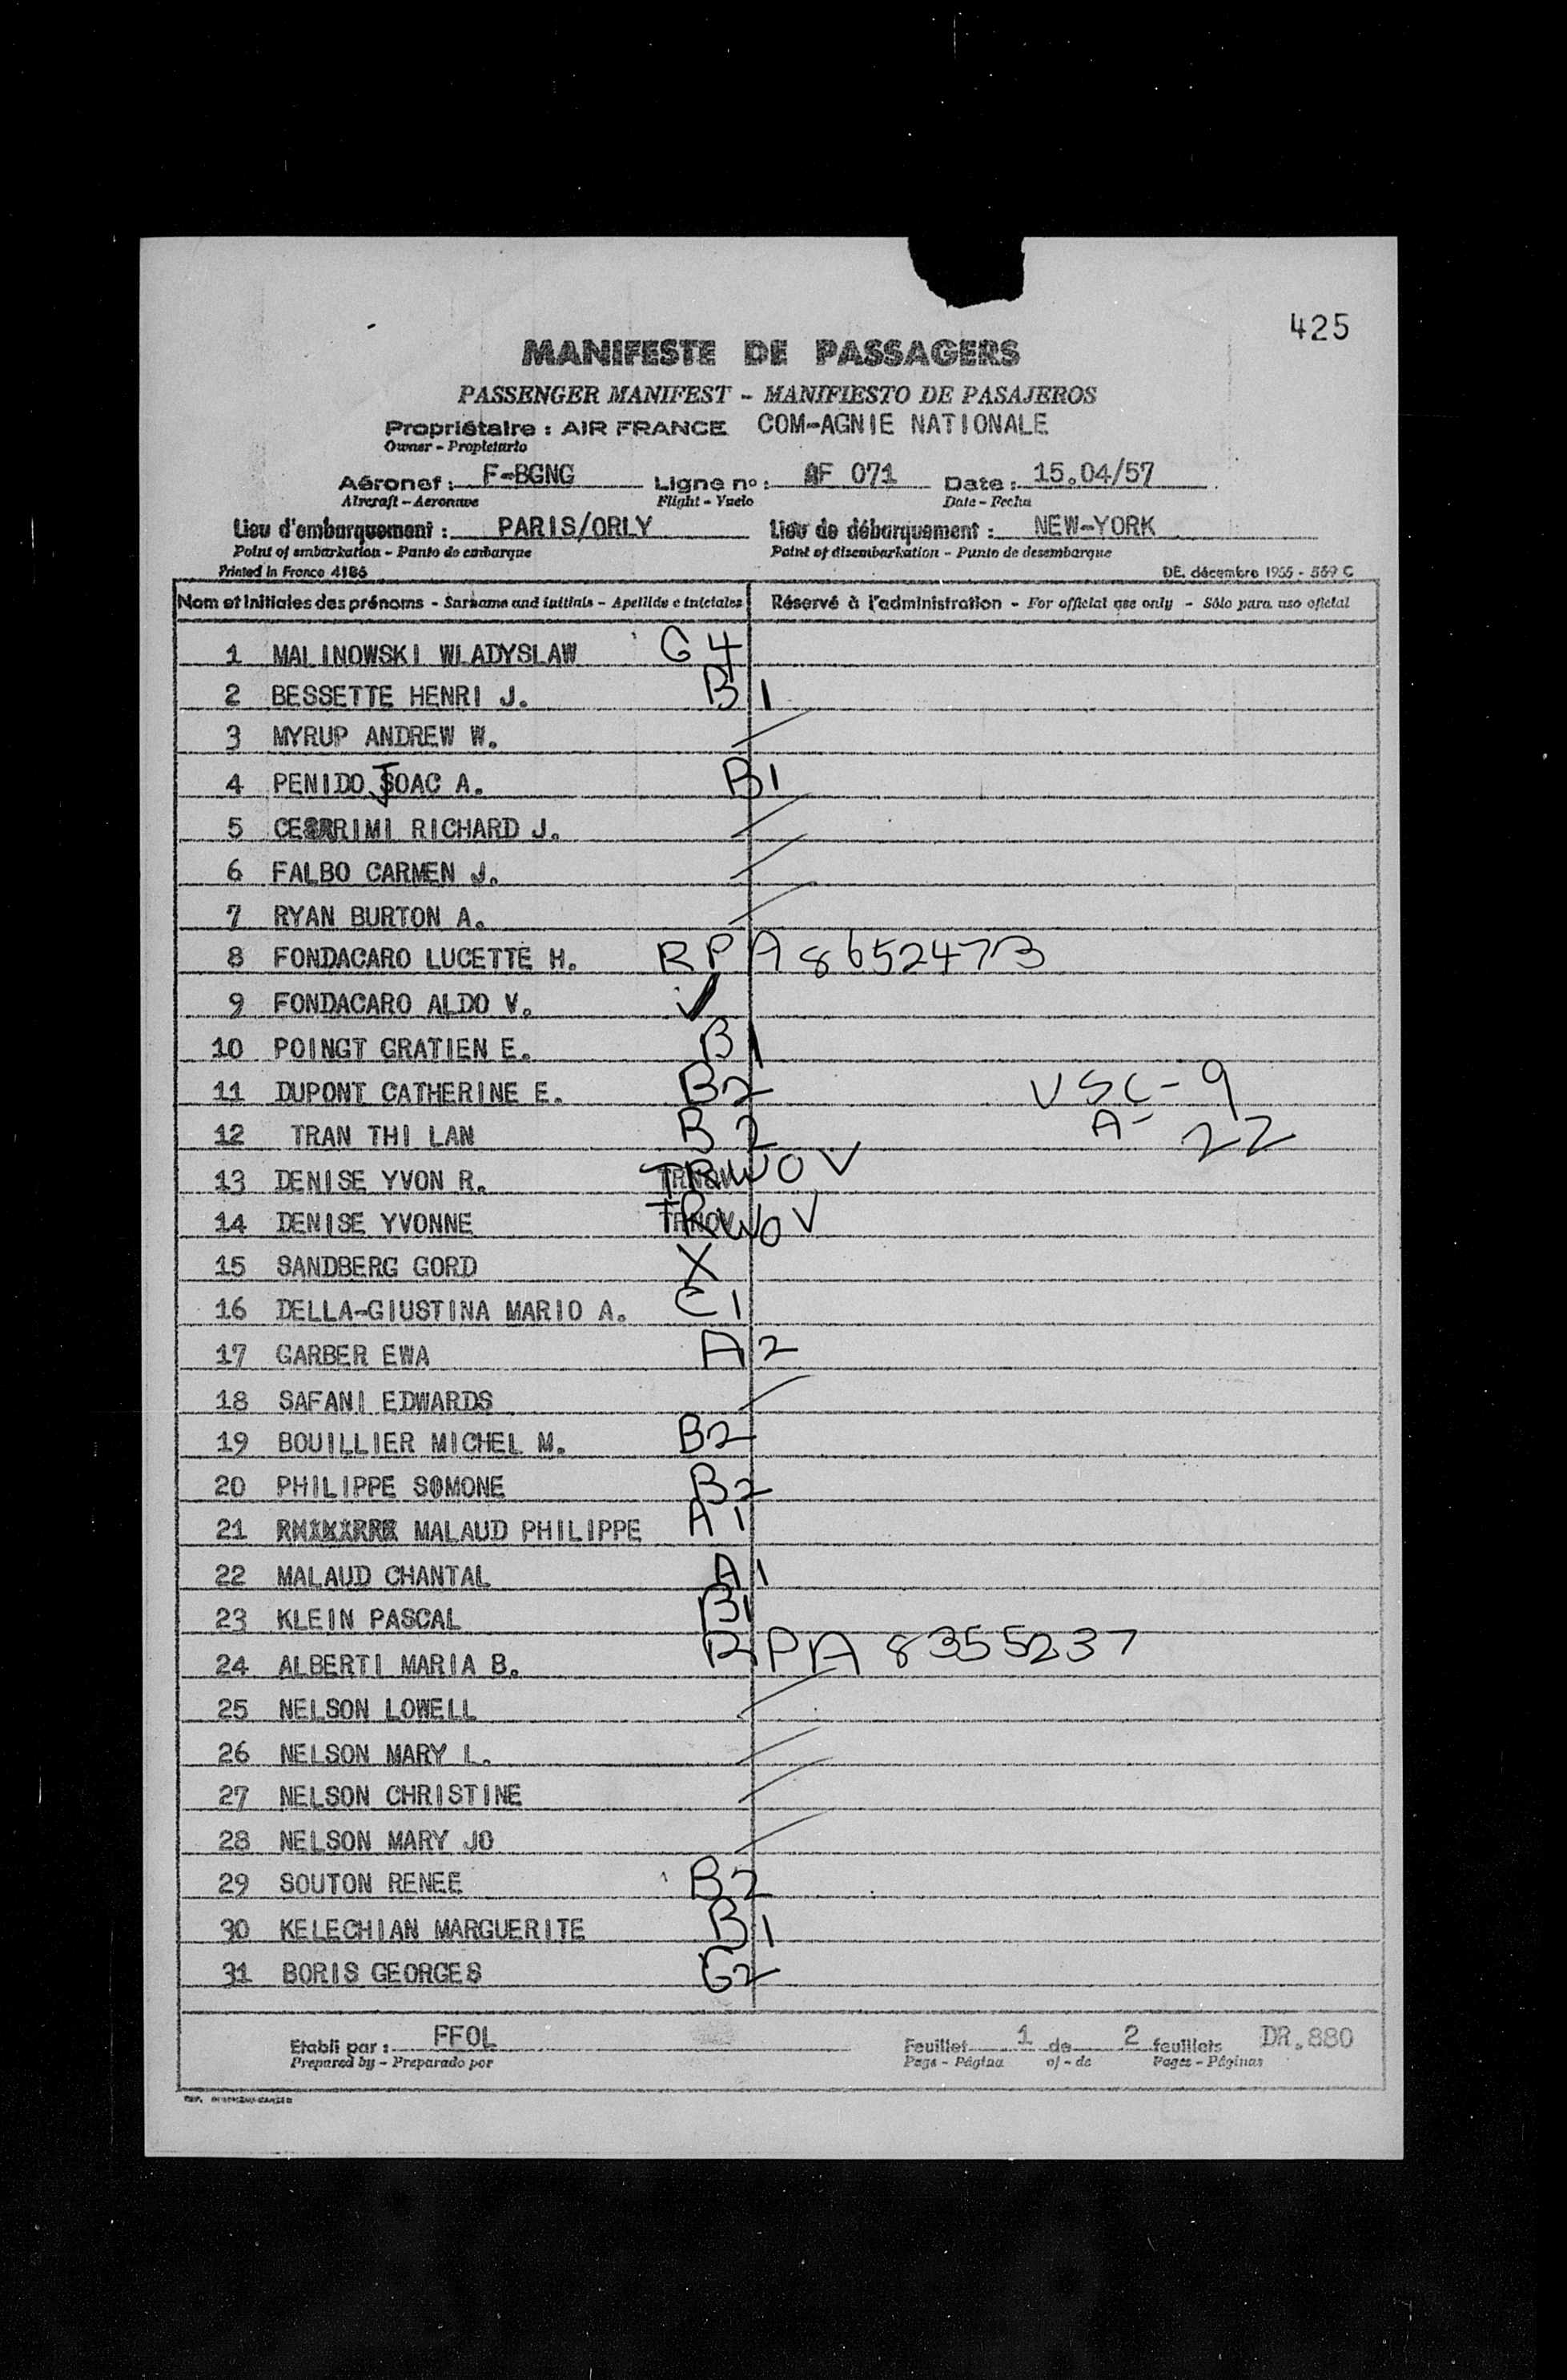 425
MANIFESTE DE PASSAGERS
PASSENGER MANIFEST - MANIFIESTO DE PASAJEROS
Propriétaire : AIR FRANCE COM-AGNIE NATIONALE
Owner - Propietario
Aéronef : F-BGNG Ligne no : AF 071 Date : 15.04/57
Aircraft - Aeronave Flight - Vuelo Date - Fecha
Lieu d'embarquement : PARIS/ORLY Lieu de débarquement : NEW-YORK
Point of embarkation - Punto de embarque Point of disembarkation - Punto de desembarque
Printed in France 4186 DE. décembre 1955 - 559 C
Nom et initiales des prénoms - Surname and initials - Apellido e iniciales Réservé à l'administration - For official use only - Sólo para uso oficial
1 MALINOWSKI WLADYSLAW G 4
2 BESSETTE HENRI J. B 1
3 MYRUP ANDREW W.
4 PENIDO JOAC A. B1
5 RICHARD J.
6 FALBO CARMEN J.
7 RYAN BURTON A.
8 FONDACARO LUCETTE H. RPA 8652473
9 FONDACARO ALDO V. ✓
10 POINGT GRATIEN E. B1
11 DUPONT CATHERINE E. B2 USC - 9
12 TRAN THI LAN B 2 A- 22
13 DENISE YVON R. TRWOV
14 DENISE YVONNE TRWOV
15 SANDBERG GORD X
16 DELLA-GIUSTINA MARIO A. C1
17 GARBER EWA A2
18 SAFANI EDWARDS
19 BOUILLIER MICHEL M. B2
20 PHILIPPE SOMONE B2
21 MALAUD PHILIPPE A1
22 MALAUD CHANTAL A1
23 KLEIN PASCAL B1
24 ALBERTI MARIA B. RPA 8355237
25 NELSON LOWELL
26 NELSON MARY L.
27 NELSON CHRISTINE
28 NELSON MARY JO
29 SOUTON RENEE B2
30 KELECHIAN MARGUERITE B1
31 BORIS GEORGES G2
Etabli par : FFOL Feuillet 1 de 2 feuillets DR.880
Prepared by - Preparado por Page - Página of - de Pages - Páginas